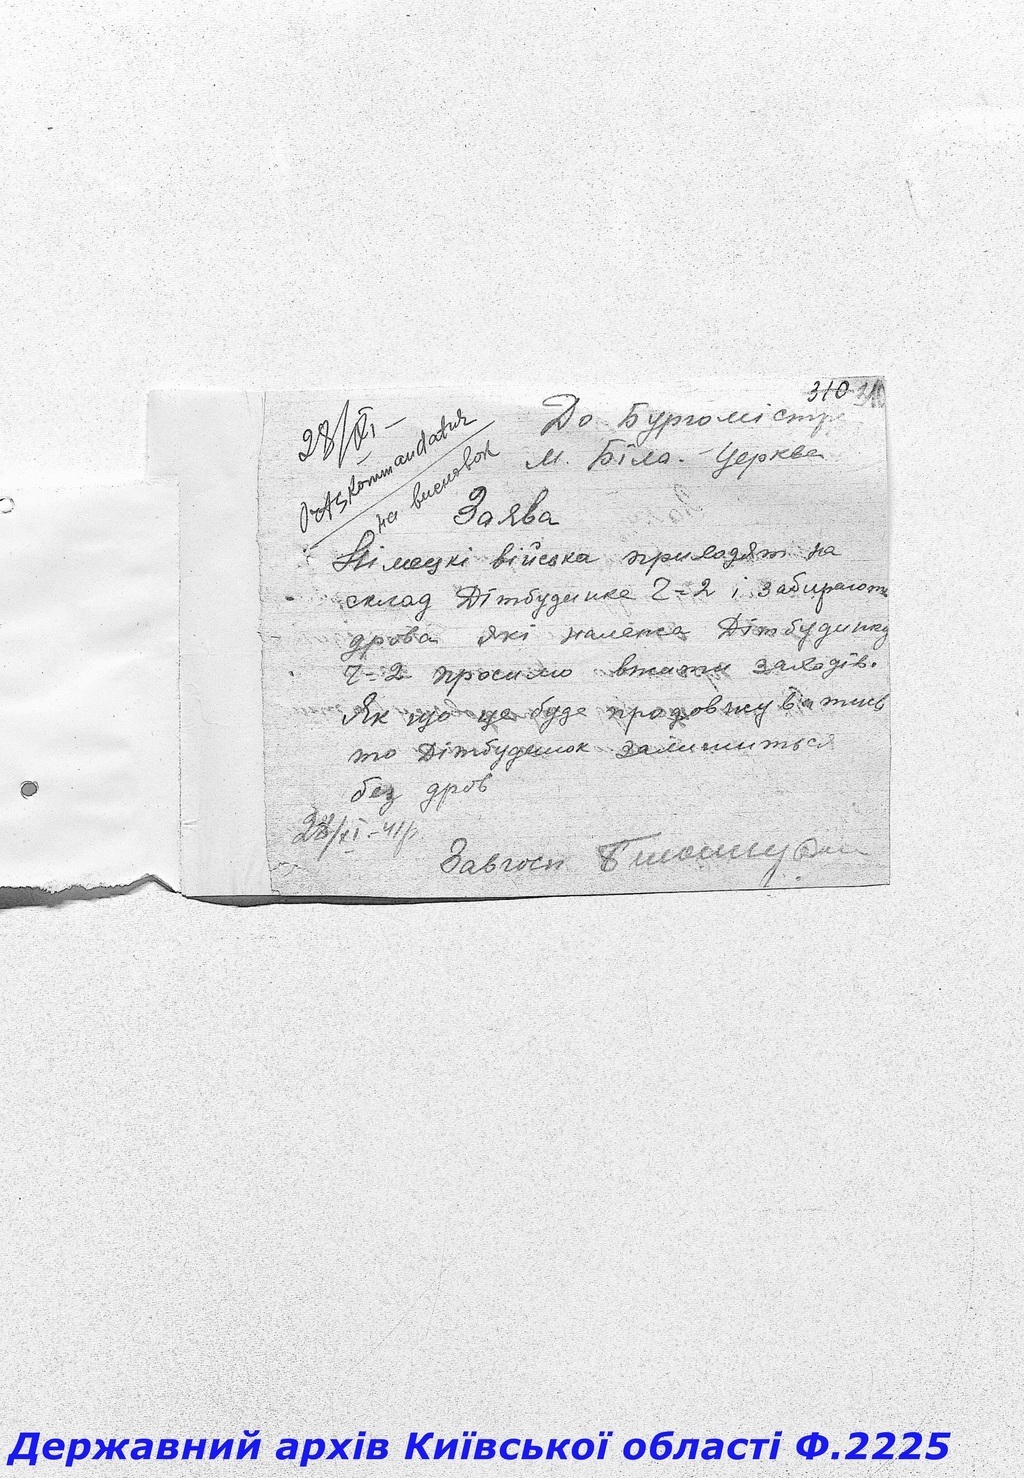 310
До Бургомістра
м. Біла-Церква
28/XI-
OrtsKommandatur
на висновок
Заява
Німецкі війська приходят на
склад Дітбудинка Ч=2 і забирають
дрова які належа Дітбудинку
Ч=2 просимо вжити заходів.
Як що це буде продовжуватись
то Дітбудинок залишиться
без дров
28/XI-41р.
Завгосп
Державний архів Київської області Ф.2225